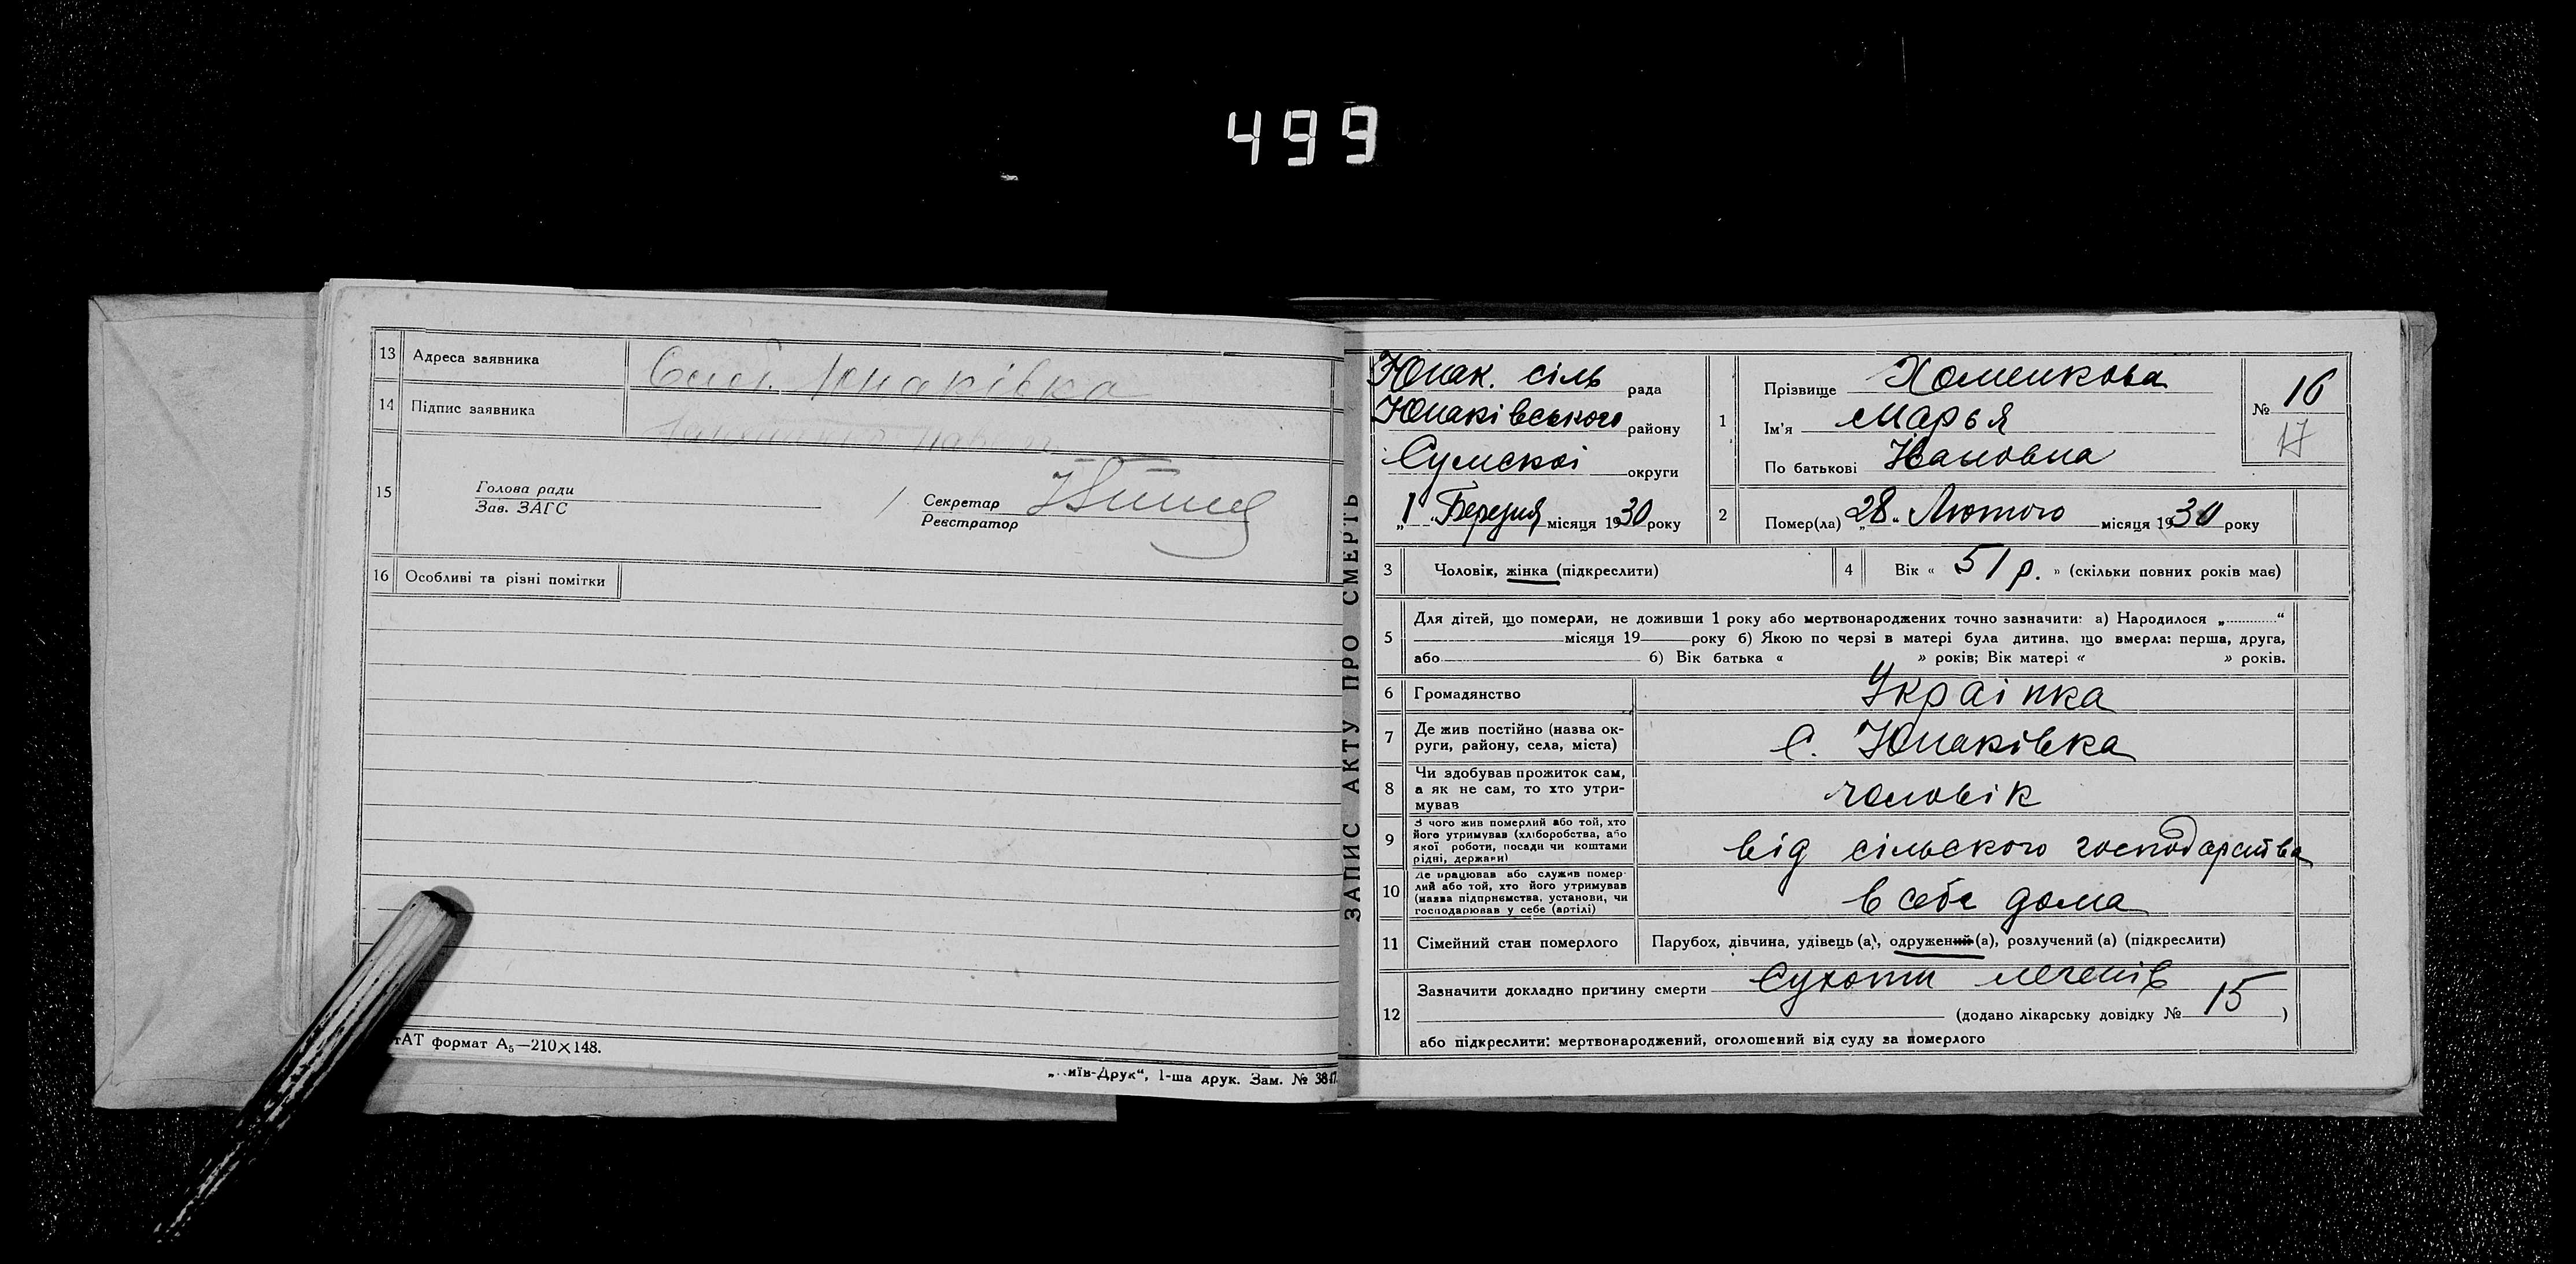 499
13 Адреса заявника Слоб. Юнаківка
14 Підпис заявника
15 Голова ради
Зав. ЗАГС
Секретар
Реєстратор
16 Особливі та різні помітки
тАТ формат А5—210×148.
„Київ-Друк“, 1-ша друк. Зам. № 3847
ЗАПИС АКТУ ПРО СМЕРТЬ
Юнак. сіль рада
Юнаківського району
Сумскоі округи
„1“ Березня місяця 1930 року
1 Прізвище Хоменкова
Ім'я Марья
По батькові Івановна
№ 16
17
2 Помер(ла) „28“ Лютого місяця 1930 року
3 Чоловік, жінка (підкреслити)
4 Вік « 51 р. » (скільки повних років має)
5 Для дітей, що померли, не доживши 1 року або мертвонароджених точно зазначити: а) Народилося „............“
місяця 19 року б) Якою по черзі в матері була дитина, що вмерла: перша, друга,
або б) Вік батька « » років; Вік матері « » років.
6 Громадянство Украінка
7 Де жив постійно (назва ок-
руги, району, села, міста) С. Юнаківка
8 Чи здобував прожиток сам,
а як не сам, то хто утри-
мував чоловік
9 З чого жив померлий або той, хто
його утримував (хліборобства, або
якої роботи, посади чи коштами
рідні, держави) від сільского господарства
10 Де працював або служив помер-
лий або той, хто його утримував
(назва підприємства, установи, чи
господарював у себе (артілі) в себе дома
11 Сімейний стан померлого Парубох, дівчина, удівець (а), одружений (а), розлучений (а) (підкреслити)
12 Зазначити докладно причину смерти Сухоти легенів
(додано лікарську довідку № 15 )
або підкреслити: мертвонароджений, оголошений від суду за померлого